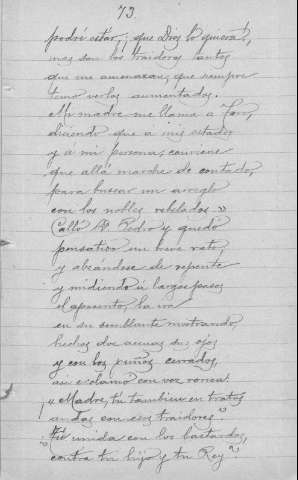 73.
poder estár, ¡que Dios lo quiera!,
mas son los traidores tantos
que me amenazan, que siempre
temo verlos aumentados.
Mi madre me llama a Toro,
diciendo que a mis estados
y á mi persona, conviene
que allá marche de contado,
para buscar un arreglo
con los nobles rebelados."
Calló D. Pedro y quedó
pensativo un breve rato,
y alzándose de repente
y midiendo á largos pasos
el aposento, la ira
en su semblante mostrando,
hechos dos ascuas sus ojos
y con los puños cerrados,
asi exclamó con voz ronca:
¡"Madre, tú tambien en tratos
andas con esos traidores"?
¿Tú unida con los bastardos,
contra tu hijo y tu Rey"?